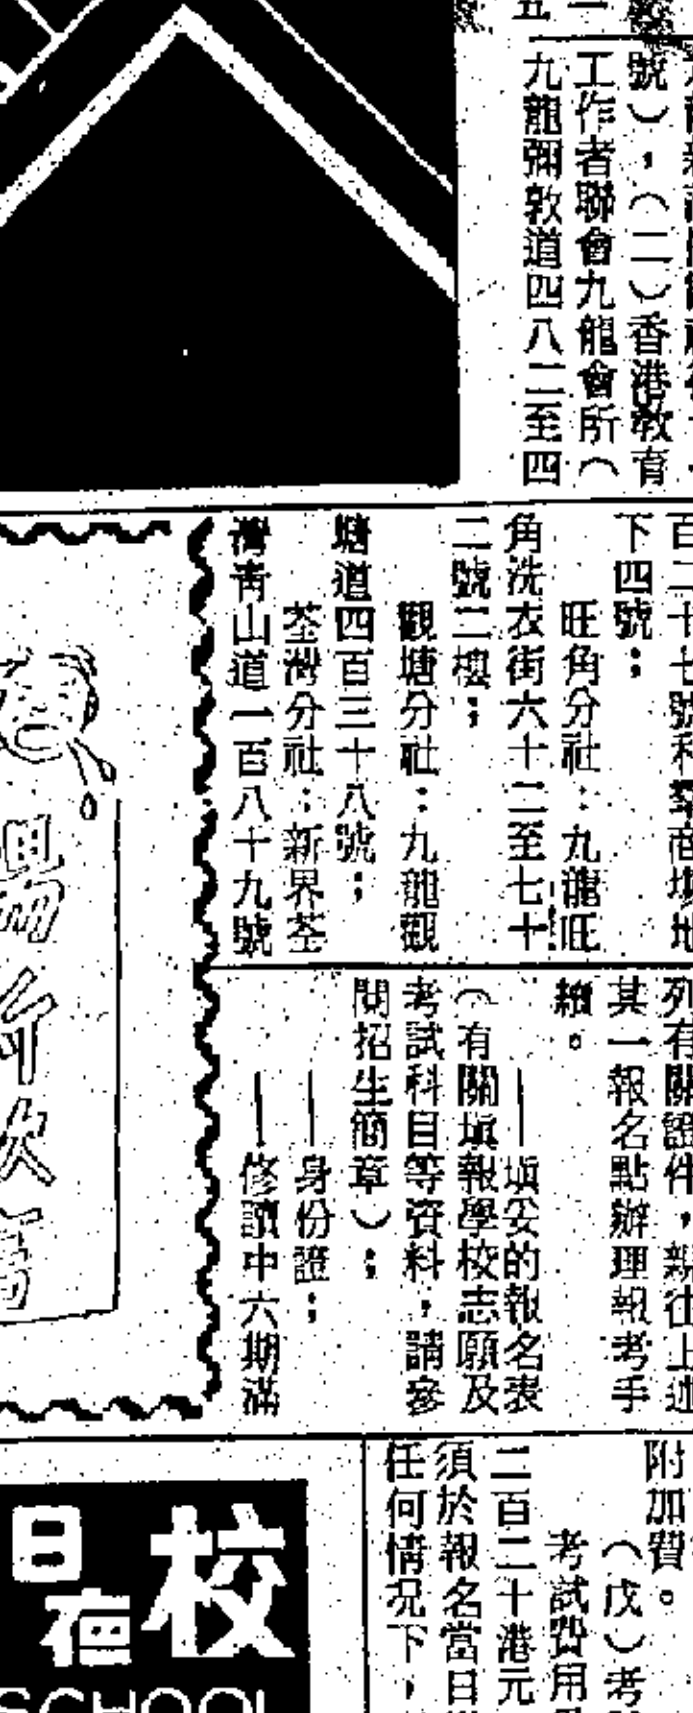 號），（二）香港教育
工作者聯會九龍會所（
九龍彌敦道四八二至四
下四號；
旺角分社：九龍旺
角洗衣街六十二至七十
二號二樓；
觀塘分社：九龍觀
塘道四百三十八號；
荃灣分社：新界荃
灣青山道一百八十九號
列有關證件，親往上述
其一報名點辦理報考手
續。
——填妥的報名表
（有關填報學校志願及
考試科目等資料，請參
閱招生簡章）；
——身份證；
——修讀中六期滿
附加費。
（戊）考
考試費用
二百二十港元
須於報名當日
任何情況下，
校
日夜
SCHOOL